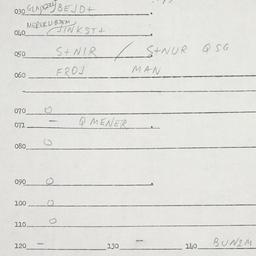 030 BEJD+
040 JINKST+
050 S+NIR / S+NUR QSG
060 FROJ MAN
070 O
071 - QMENER
080 O
090 O
100 O
110 O
120 - 130 - 140 BUNIM